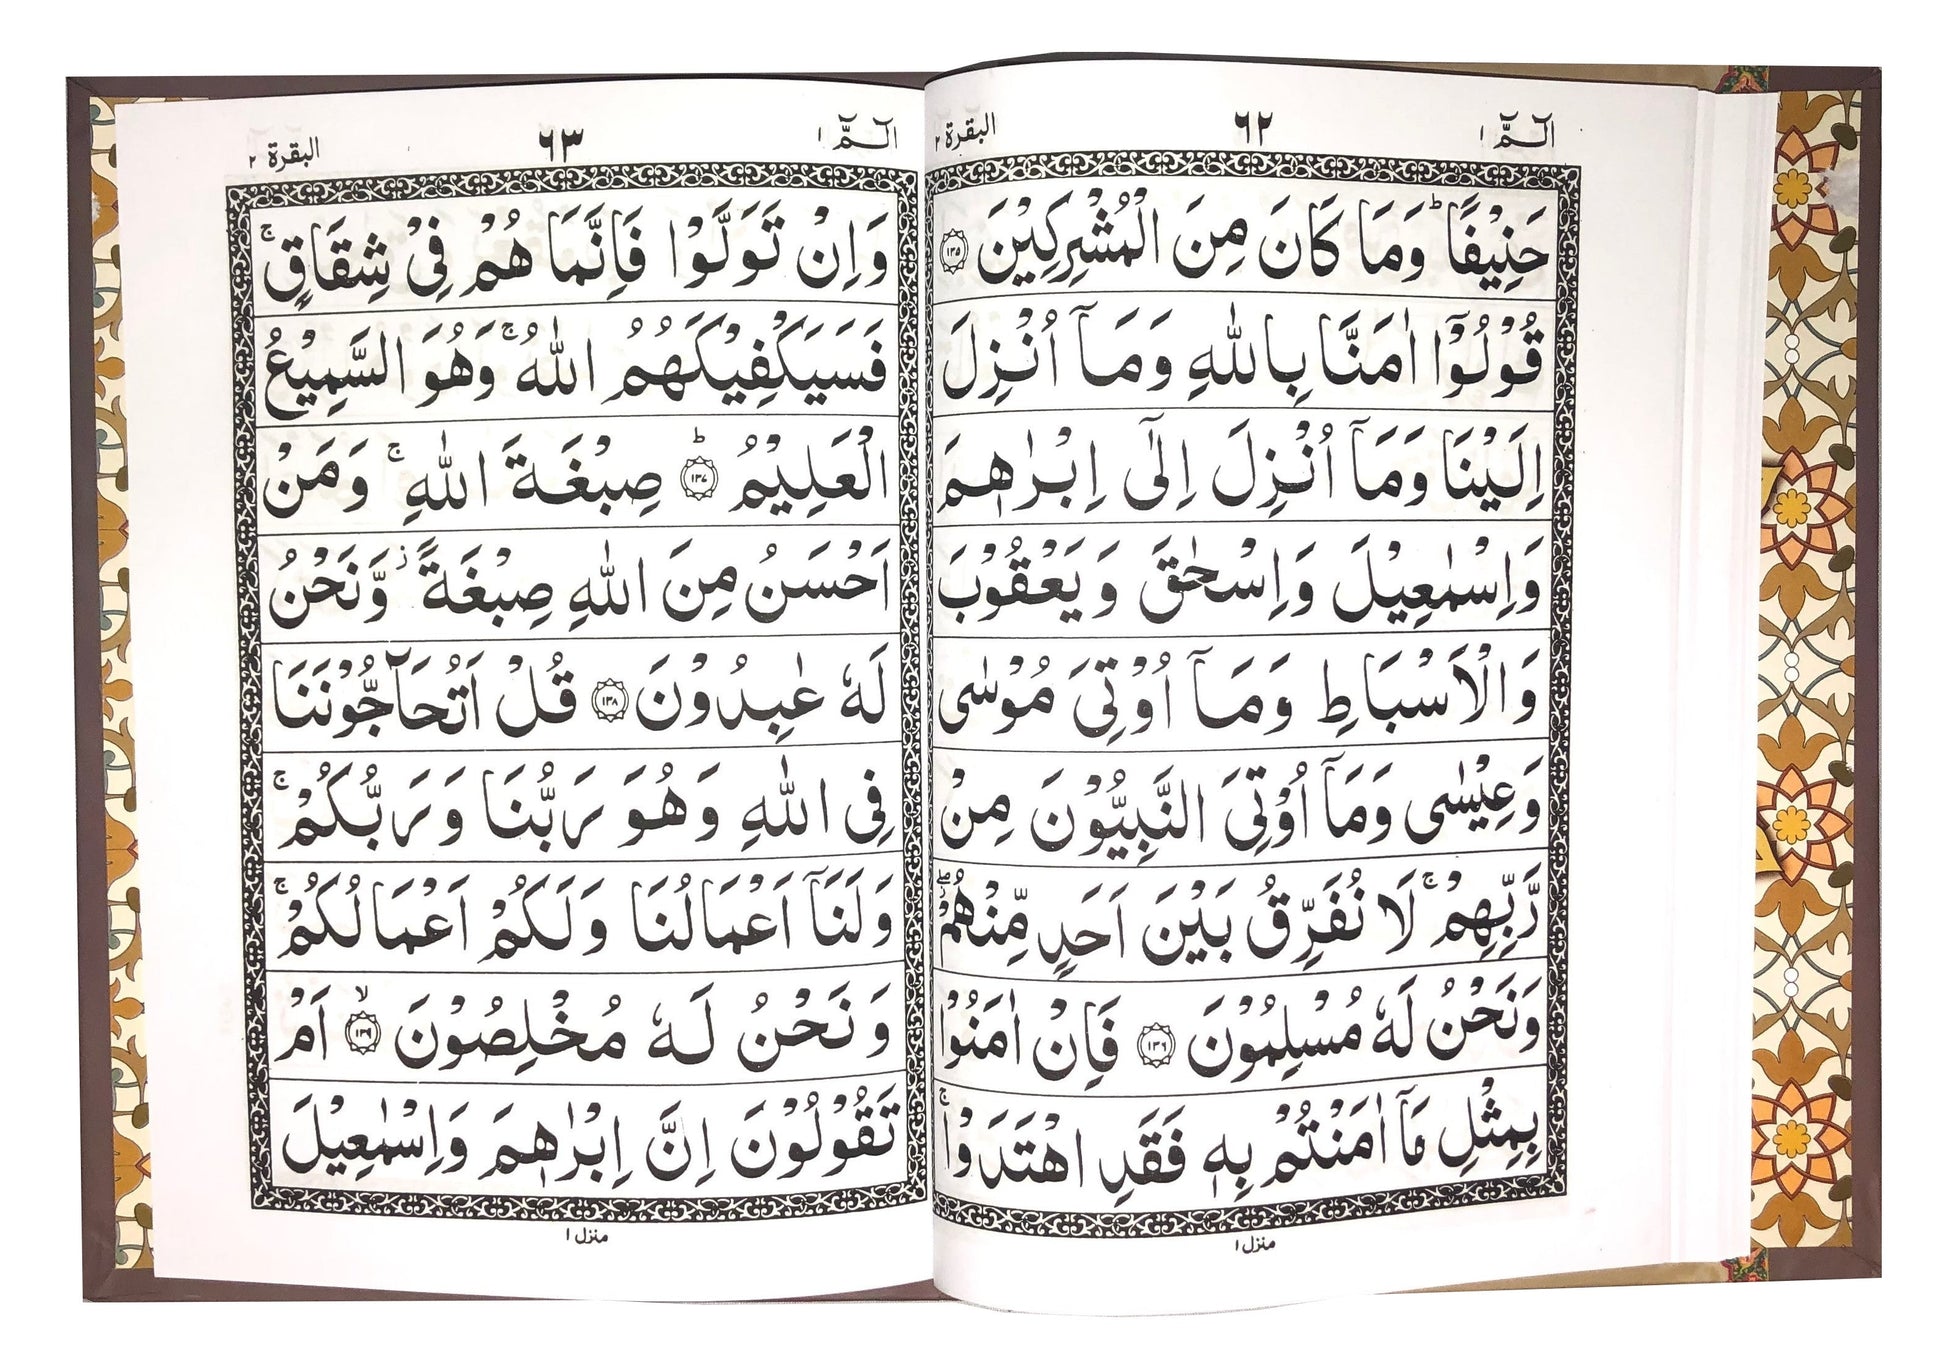 الٓـمّٓ ١
٦٢
البقرة ٢
حَنِيْفًا ؕ وَمَا كَانَ مِنَ الْمُشْرِكِيْنَ ۝١٣٥
قُوْلُوْٓا اٰمَنَّا بِاللّٰهِ وَمَآ اُنْزِلَ
اِلَيْنَا وَمَآ اُنْزِلَ اِلٰٓى اِبْرٰهٖمَ
وَاِسْمٰعِيْلَ وَاِسْحٰقَ وَيَعْقُوْبَ
وَالْاَسْبَاطِ وَمَآ اُوْتِيَ مُوْسٰى
وَعِيْسٰى وَمَآ اُوْتِيَ النَّبِيُّوْنَ مِنْ
رَّبِّهِمْ ۚ لَا نُفَرِّقُ بَيْنَ اَحَدٍ مِّنْهُمْ ۖ
وَنَحْنُ لَهٗ مُسْلِمُوْنَ ۝١٣٦ فَاِنْ اٰمَنُوْا
بِمِثْلِ مَآ اٰمَنْتُمْ بِهٖ فَقَدِ اهْتَدَوْا ۚ
منزل ١
الٓـمّٓ ١
٦٣
البقرة ٢
وَاِنْ تَوَلَّوْا فَاِنَّمَا هُمْ فِيْ شِقَاقٍ ۚ
فَسَيَكْفِيْكَهُمُ اللّٰهُ ۚ وَهُوَ السَّمِيْعُ
الْعَلِيْمُ ۝١٣٧ ؕ صِبْغَةَ اللّٰهِ ۚ وَمَنْ
اَحْسَنُ مِنَ اللّٰهِ صِبْغَةً ز وَّنَحْنُ
لَهٗ عٰبِدُوْنَ ۝١٣٨ قُلْ اَتُحَآجُّوْنَنَا
فِي اللّٰهِ وَهُوَ رَبُّنَا وَرَبُّكُمْ ۚ
وَلَنَآ اَعْمَالُنَا وَلَكُمْ اَعْمَالُكُمْ ۚ
وَنَحْنُ لَهٗ مُخْلِصُوْنَ ۝١٣٩ ۙ اَمْ
تَقُوْلُوْنَ اِنَّ اِبْرٰهٖمَ وَاِسْمٰعِيْلَ
منزل ١